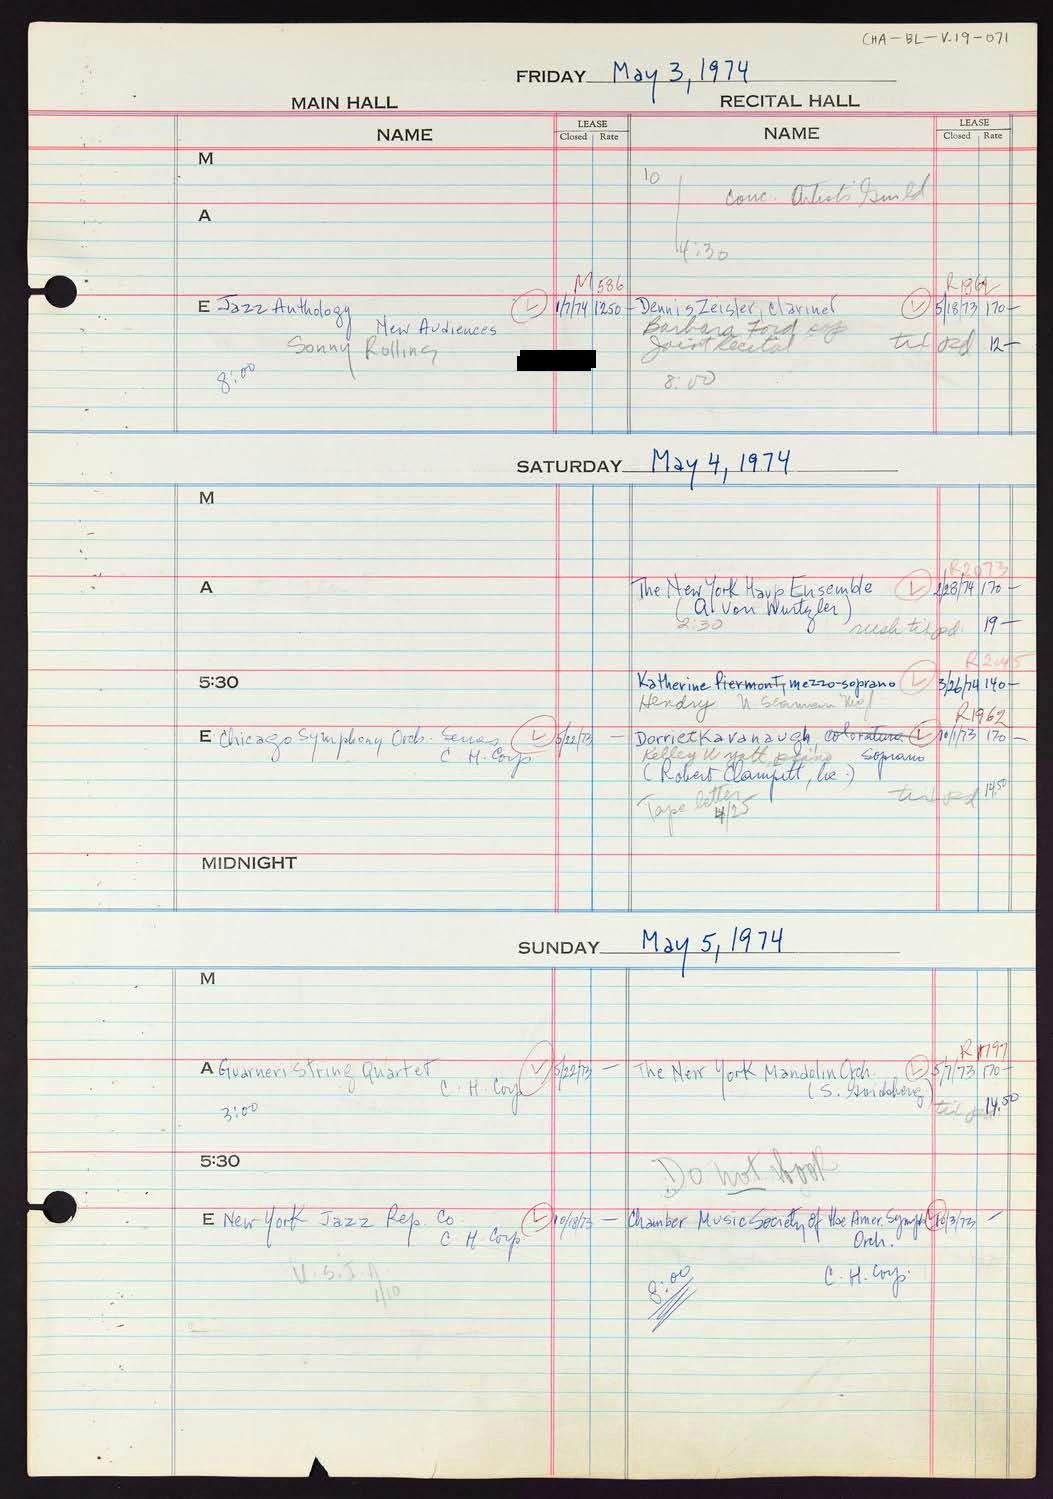 CHA-BL-V.19-071
FRIDAY May 3, 1974
MAIN HALL RECITAL HALL
NAME LEASE Closed Rate NAME LEASE Closed Rate
M
10
Conc. Artists Guild
A
4:30
M 586 R1864
E Jazz Anthology L 1/7/74 1250- Dennis Zeisler, clarinet L 5/18/73 170-
New Audiences Barbara Ford
Sonny Rollins Joint Recital tix pd 12-
8:00 8:00
SATURDAY May 4, 1974
M
R2073
A The New York Harp Ensemble L 2/28/74 170-
(A. Von Wurtzler)
2:30 rush tix pd. 19-
R2045
5:30 Katherine Piermont, mezzo-soprano L 3/26/74 140-
Hendry
R1962
E Chicago Symphony Orch. Series L 5/22/73 - Dorriet Kavanaugh, coloratura L 10/1/73 170-
C. H. Corp Kelley Wyatt, piano Soprano
(Robert Clampitt, Inc.)
Tape letter tix pd 14.50
4/25
MIDNIGHT
SUNDAY May 5, 1974
M
R1797
A Guarneri String Quartet L 5/22/73 - The New York Mandolin Orch. L 5/7/73 170-
C. H. Corp (S. Goichberg)
3:00 tix pd 14.50
5:30
Do not book
E New York Jazz Rep. Co L 10/18/73 - Chamber Music Society of the Amer. Symph L 10/3/73 -
C. H. Corp Orch.
8:00 C. H. Corp.
1/10